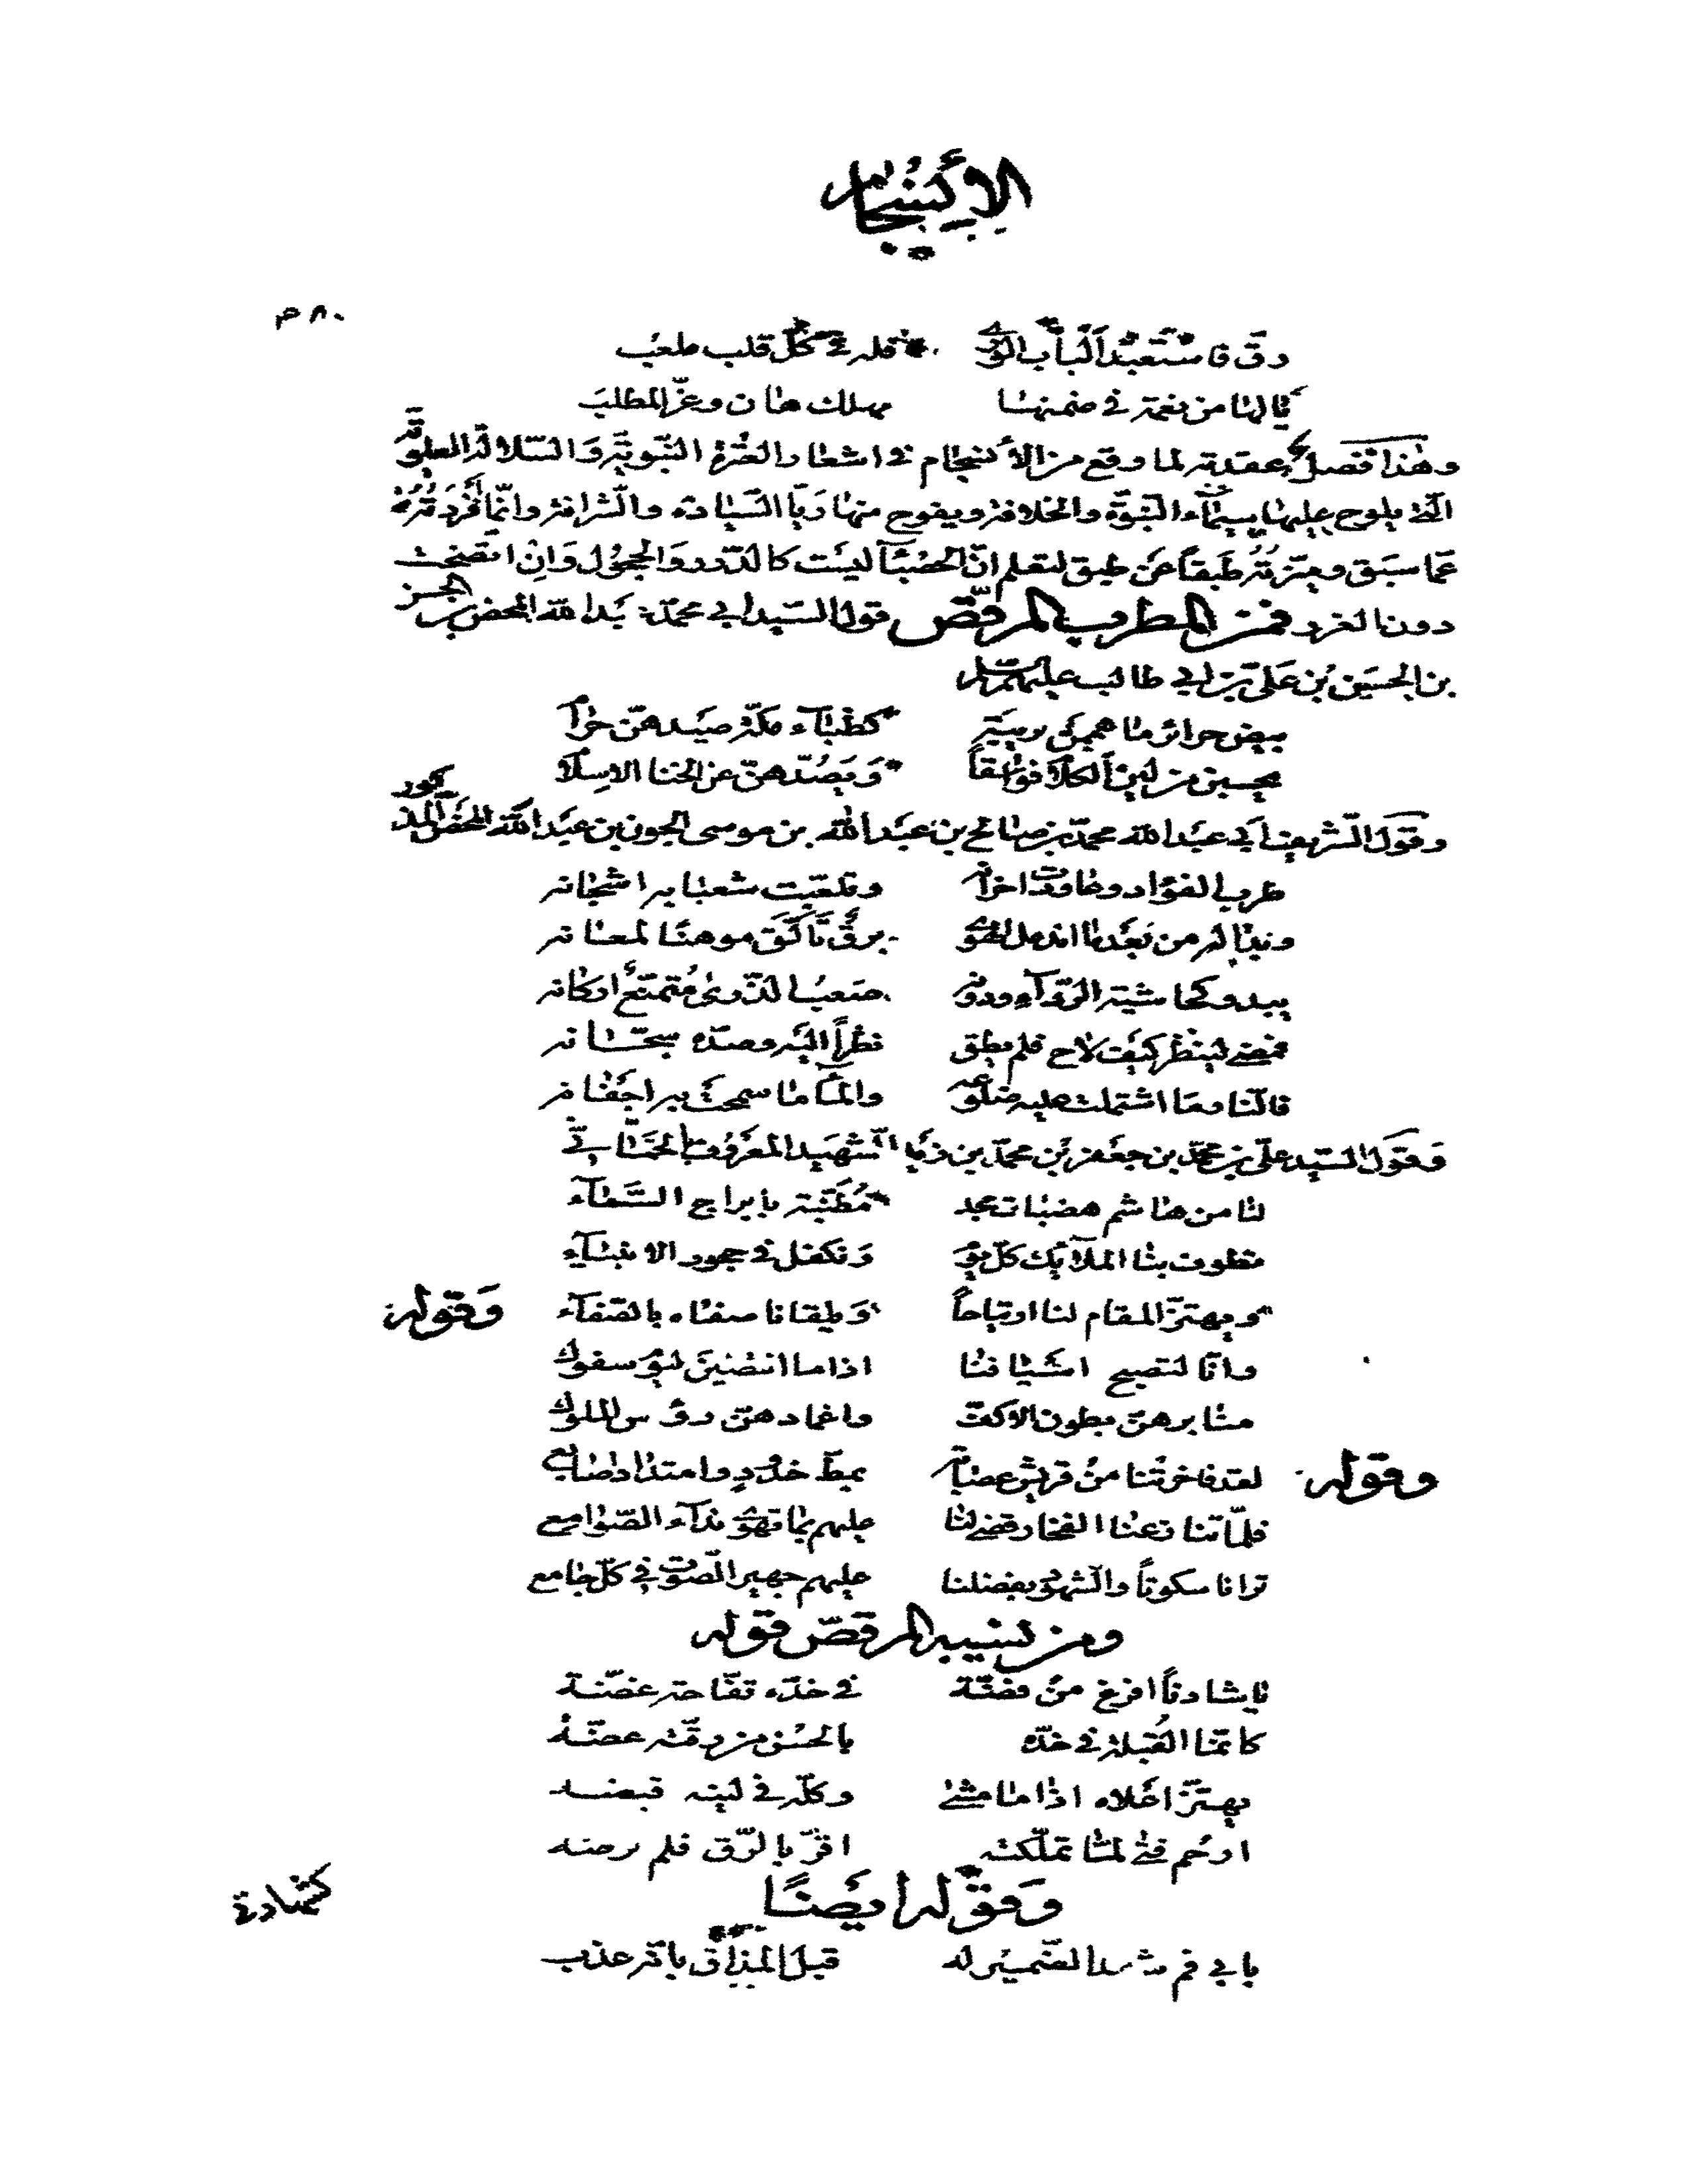 الانسجام
٨٠ م
دق فاستعبد ألباب الورى فله في كل قلب ملعب
يا لها من نعمة في ضمنها مهلك هان وعز المطلب
وهذا فصل عقدته لما وقع من الانسجام في اشعار العترة النبوية والسلالة العلوية
التي يلوح عليها سيماء النبوة والخلافة ويفوح منها ريا السيادة والشرافة وانما أفردته
عما سبق وميزته طبقاً عن طبق لتعلم انّ الحصباء ليست كالدرر والحجول وَان اتضحت
دون الغرر فمن المطرب المرقص قول السيد ابي محمد عبد الله المحض بن الحسن
بن الحسين بن علي بن ابي طالب عليهم السلام
بيض حرائر ما هممن بريبة كظباء مكة صيدهن حرام
يحسبن من لين الكلام فواسقاً وَيصدّهن عن الخنا الاسلام
وقول الشريف ابي عبد الله محمد بن صالح بن عبد الله بن موسى الجون بن عبد الله المحض المذكور
طرب الفؤاد وعاودت احزانه وتلعبت شعبا به اشجانه
وبدا له من بعد ما اندمل الهوى برق تألق موهنا لمعانه
يبدو كحاشية الرداء ودونه صعب الذرى متمنع اركانه
فمضى لينظر كيف لاح فلم يطق نظراً اليه وصده سجانه
فالنار ما اشتملت عليه ضلوعه والماء ما سمحت به اجفانه
وقول السيد علي بن محمد بن جعفر بن محمد بن زيد الشهيد المعروف بالحماني
لنا من هاشم هضبات مجد مطنبة بابراج السماء
تطوف بنا الملائك كل يوم ونكفل في حجور الانبياء
ويهتز المقام لنا ارتياحاً ويلقانا صفاه بالصفاء وقوله
وانا لتصبح اسيافنا اذا ما انتضين ليوم سفوك
منابرهن بطون الاكف واغمادهن رؤس الملوك
وقوله لقد فاخرتنا من قريش عصابة بمط خدود وامتداد اصابع
فلما تنازعنا الفخار قضى لنا عليهم بما نهوى نداء الصوامع
ترانا سكوتاً والشهود بفضلنا عليهم جهير الصوت في كل جامع
ومن نسيبه المرقص قوله
يا شادناً افرغ من فضة في خده تفاحة غضة
كانما القبلة في خده بالحسن من رقته عضة
يهتز اعلاه اذا ما مشى وكله في لينه قبضه
ارحم فتى لما تملكته اقر بالرق فلم ترضه
وقوله ايضاً
بابي فم شهد الضمير له قبل المذاق بانه عذب
كشهادة